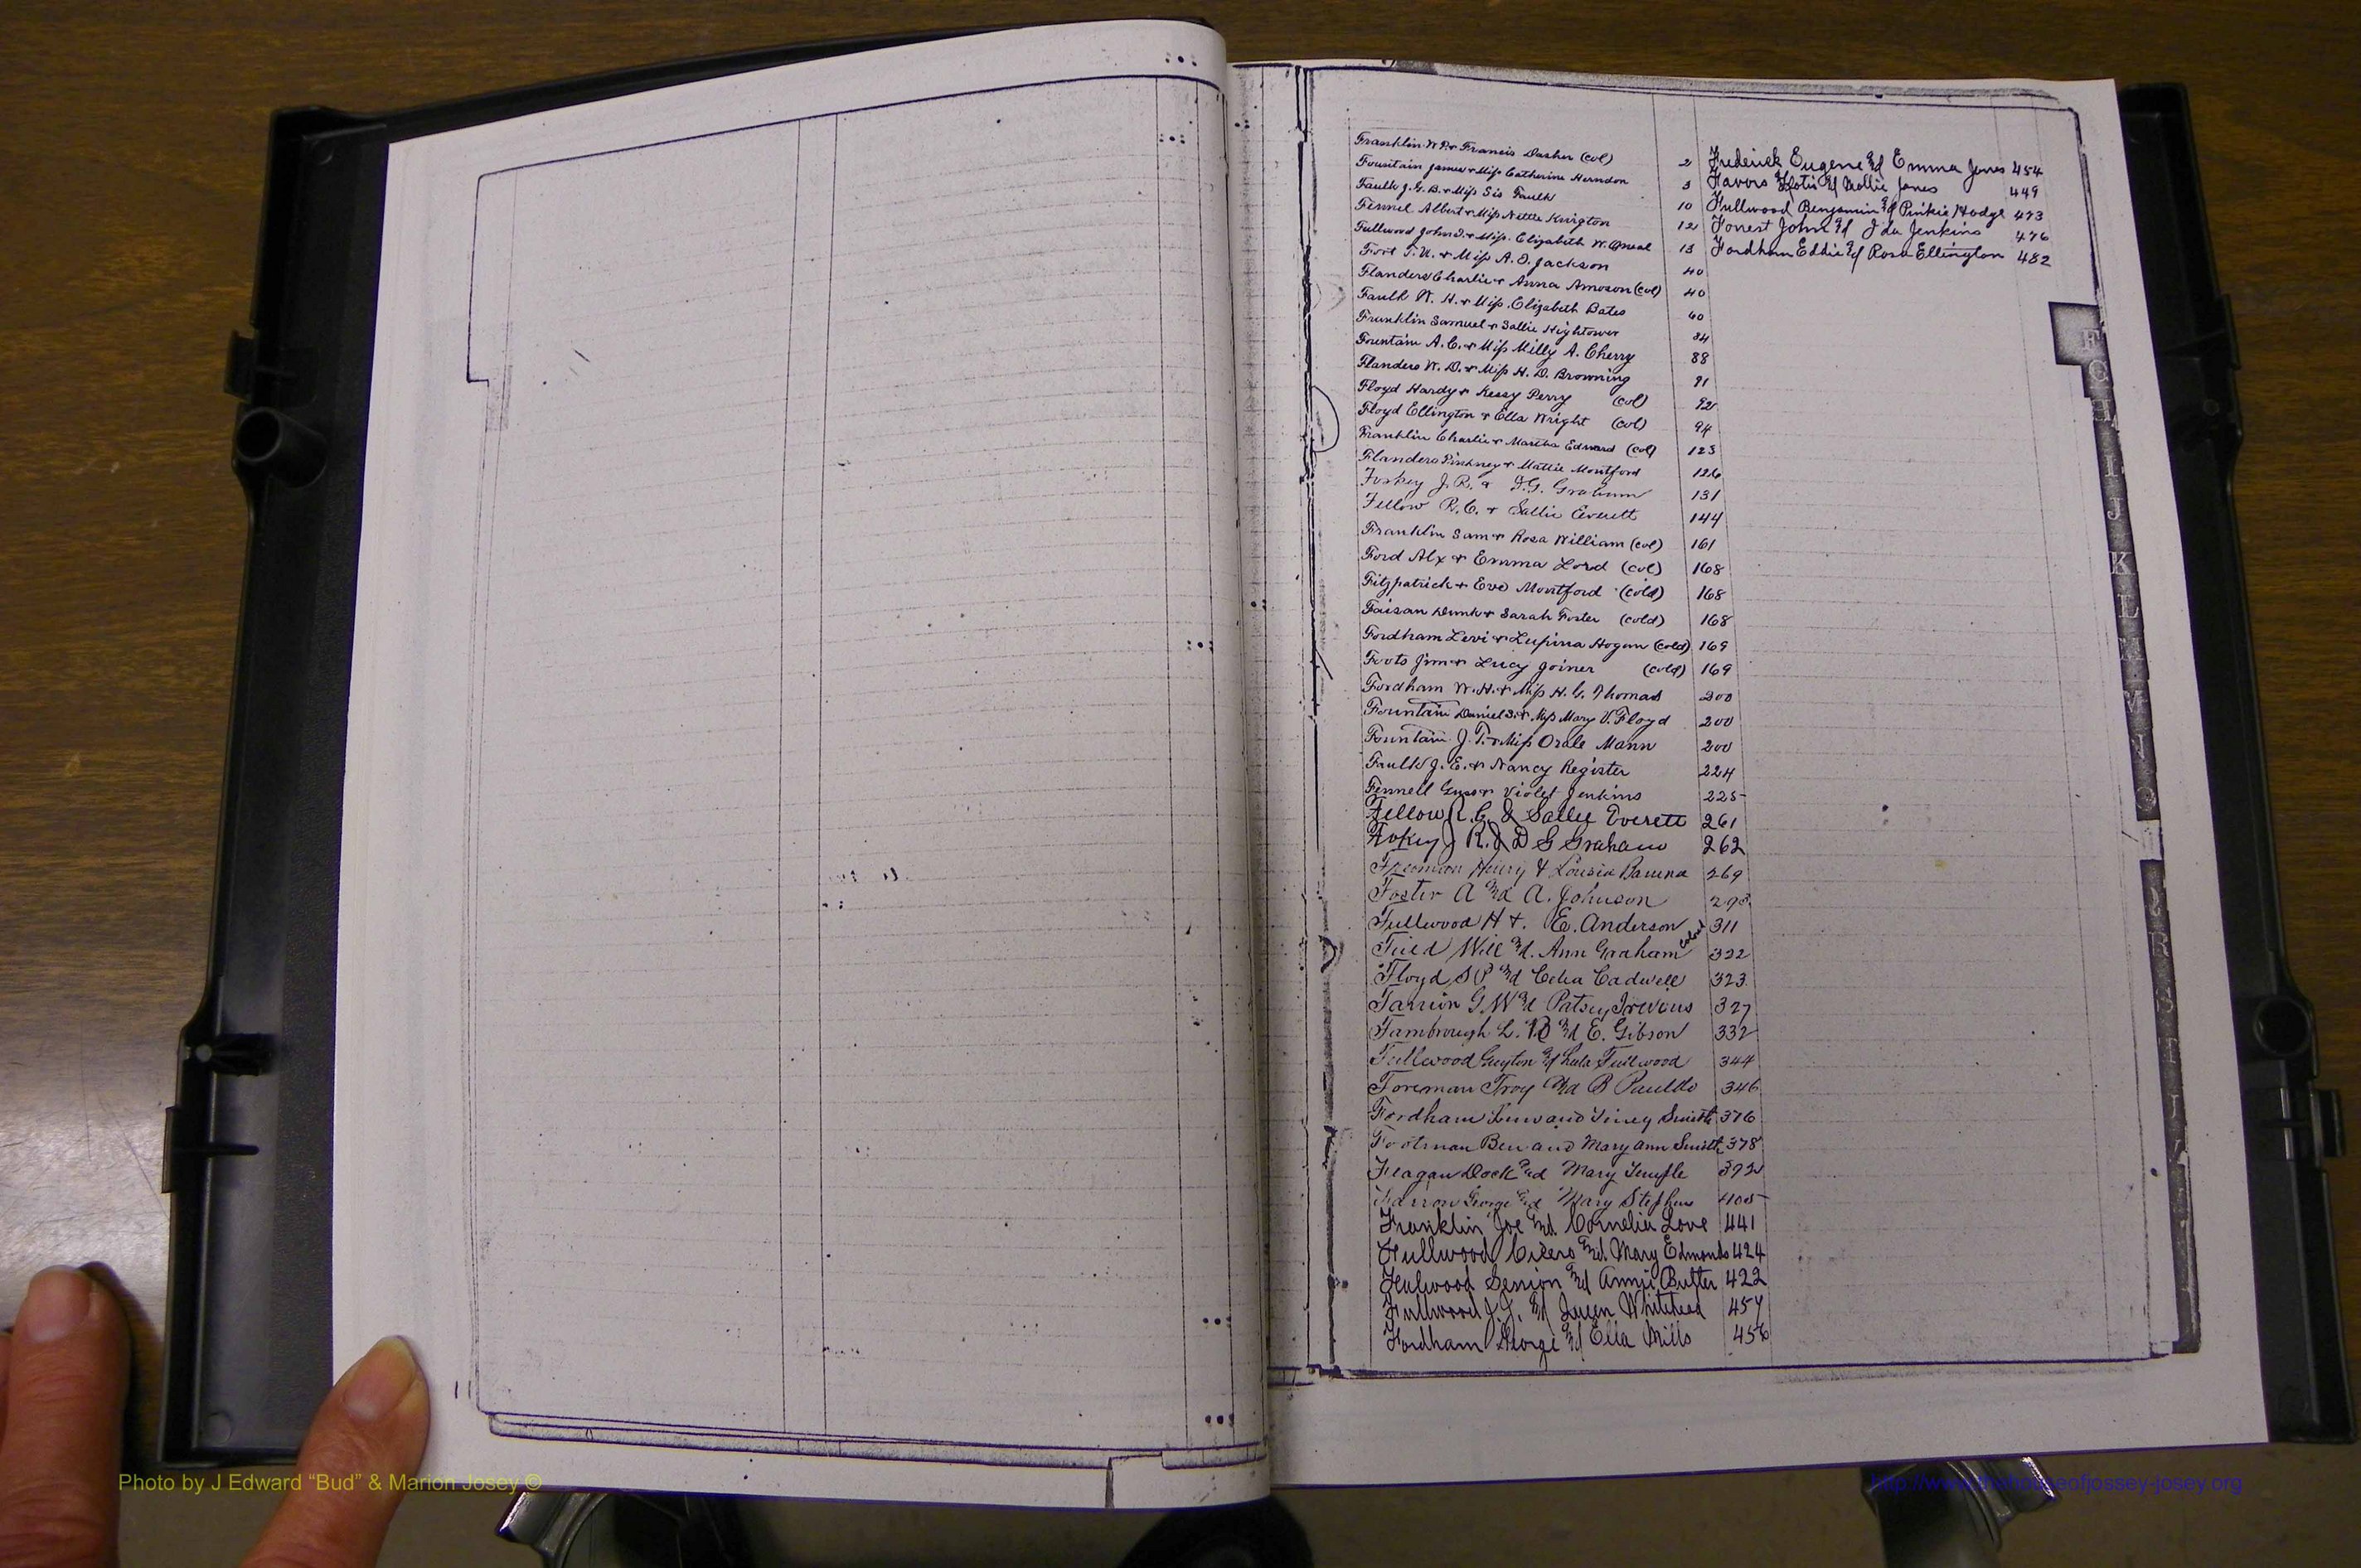 Franklin W. P. & Francis Dasher (col) 2
Fountain James & Miss Catherine Herndon 3
Faulk J. G. B. & Miss Sis Faulk 10
Fennel Albert & Miss Nettie Knigton 12
Fullwood John D. & Miss Elizabeth W. Oneal 13
Fort T. U. & Miss A. D. Jackson 40
Flanders Charlie & Anna Amoson (col) 40
Faulk W. H. & Miss Elizabeth Bates 60
Franklin Samuel & Sallie Hightower 84
Fountain A. C. & Miss Milly A. Cherry 88
Flanders W. D. & Miss H. D. Browning 91
Floyd Hardy & Kessy Perry (col) 92
Floyd Ellington & Ella Wright (col) 94
Franklin Charlie & Martha Edward (col) 123
Flanders Pinkney & Mattie Montford 126
Foskey J. R. & D. G. Graham 131
Fellow R. C. & Sallie Everett 144
Franklin Sam & Rosa William (col) 161
Ford Alx & Emma Lord (col) 168
Fitzpatrick & Eve Montford (cold) 168
Faisan Dunk & Sarah Foster (cold) 168
Fordham Levi & Lupina Hogan (cold) 169
Foots Jim & Lucy Joiner (cold) 169
Fordham W. H. & Miss H. G. Thomas 200
Fountain Daniel S. & Miss Mary V. Floyd 200
Fountain J. T. & Miss Orale Mann 200
Faulk J. E. & Nancy Register 224
Fennell Guss & Violet Jenkins 225
Fellow R. C. & Sallie Everett 261
Foskey J R. & D G Graham 262
Freeman Henry & Louisia 269
Foster A and A. Johnson 298
Fullwood H &. E. Anderson 311
Will and. Ann Graham Colord 322
Floyd S P and Celia Cadwell 323
G W and Patsy 327
Fambrough L. and E. Gibson 332
Fullwood Guyton and Lula Fullwood 344
Foreman Troy and B Pauldo 346
Fordham and Smith 376
Footman Ben and Mary Ann Smith 378
Feagan Dock and Mary Temple 392
Farrow George and Mary Stephens 405
Franklin Joe and. Cornelia Love 441
Fullwood Cicero and. Mary Edmonds 424
Fulwood Senion and Annie Butler 422
Fullwood J. J. and Queen Whitehead 457
Fordham George and Ella Mills 456
Frederick Eugene and Emma Jones 454
Favors and Mollie Jones 449
Fullwood Benjamin and Pinkie Hodge 473
Forest John and Ida Jenkins 476
Fordham Eddie and Rosa Ellington 482
F
G
H
I
J
K
L
M
N
O
Q
R
S
T
Photo by J Edward “Bud” & Marion Josey ©
http://www.thehouseofjossey-josey.org